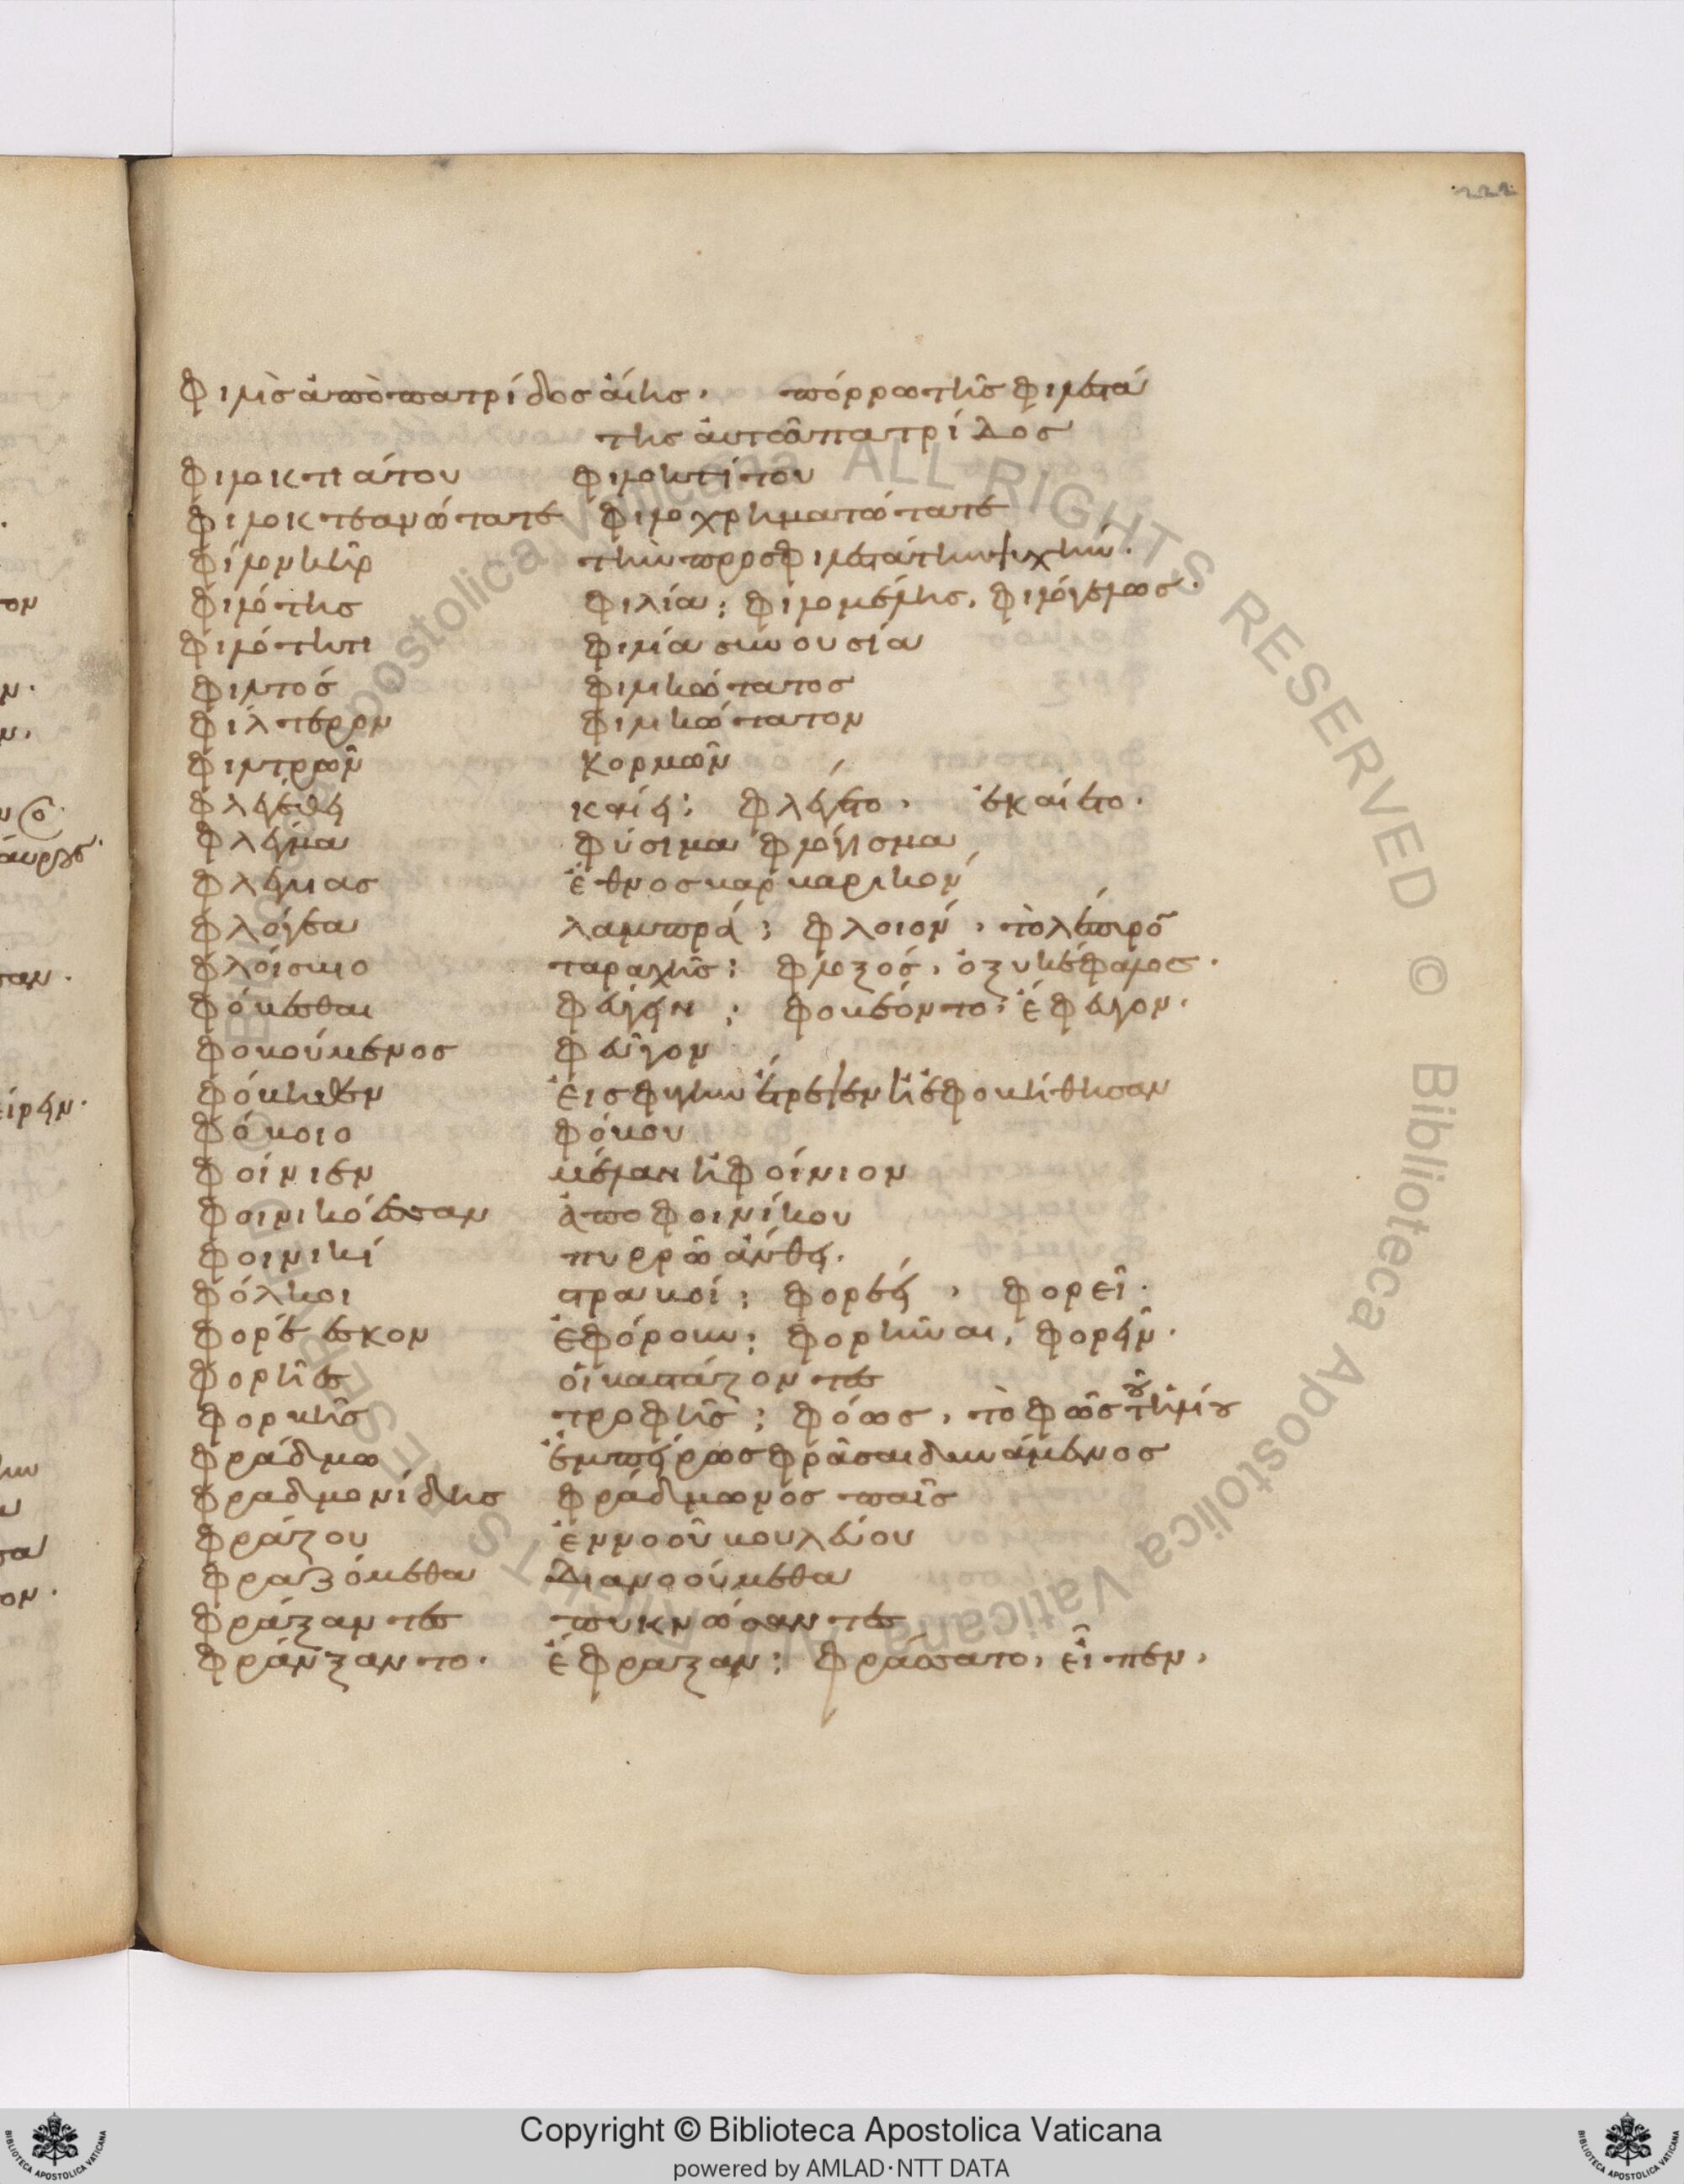 222
φίλης ἀπὸ πατρίδος αἴης· πόρρω τῆς φιλτά
της αὐτοῦ πατρίδος
φιλοκτίστου φιλοκτίτου
φιλοκτεανώτατε φιλοχρηματώτατε
φίλον κῆρ τὴν προσφιλεστάτην ψυχήν·
φιλότης φιλία: φιλομειδής, φιλόγελως·
φιλότητι φιλία συνουσία
φιλτός φιληκώτατος
φίλτερον φιληκώτατον
φιτρῶν κορμῶν
φλέγει καίει: φλέγετο, ἐκαίετο·
φλέγμα φύσημα φλόγισμα
φλέγυας ἔθνος βαρβαρικόν
φλόγεα λαμπρά: φλοιόν, τὸ λέπυρον
φλοίσβοιο ταραχῆς: φλοξός, ὀξυκέφαλος·
φοβεῖσθαι φεύγειν: φοβέοντο, ἔφευγον·
φοβούμενος φεύγων
φόβηθεν εἰς φυγὴν ἔτρεψεν ἢ ἐφοβήθησαν
φόβοιο φόβου
φοίνιεν μέλαν ἢ φοίνιον
φοινικόεσσαν ἀπὸ φοινίκου
φοινικί πυρρῷ ἄνθει·
φολκοί στραβοί: φορέει, φορεῖ·
φορέεσκον ἐφόρουν: φορῆναι, φορεῖν·
φορῆες οἱ βαστάζοντες
φορβῆς τροφῆς: φόως, τὸ φῶς τοῦ ἡλίου
φράδμω ἐμπείρως φράσαι δυνάμενος
φραδμονίδης φράδμωνος παῖς
φράζου ἐννοοῦ βουλεύου
φραζόμεθα διανοούμεθα
φράξαντες πυκνώσαντες
φράνξαντο· ἔφραξαν: φράσσατο, εἶπεν,
Copyright © Biblioteca Apostolica Vaticana
powered by AMLAD·NTT DATA